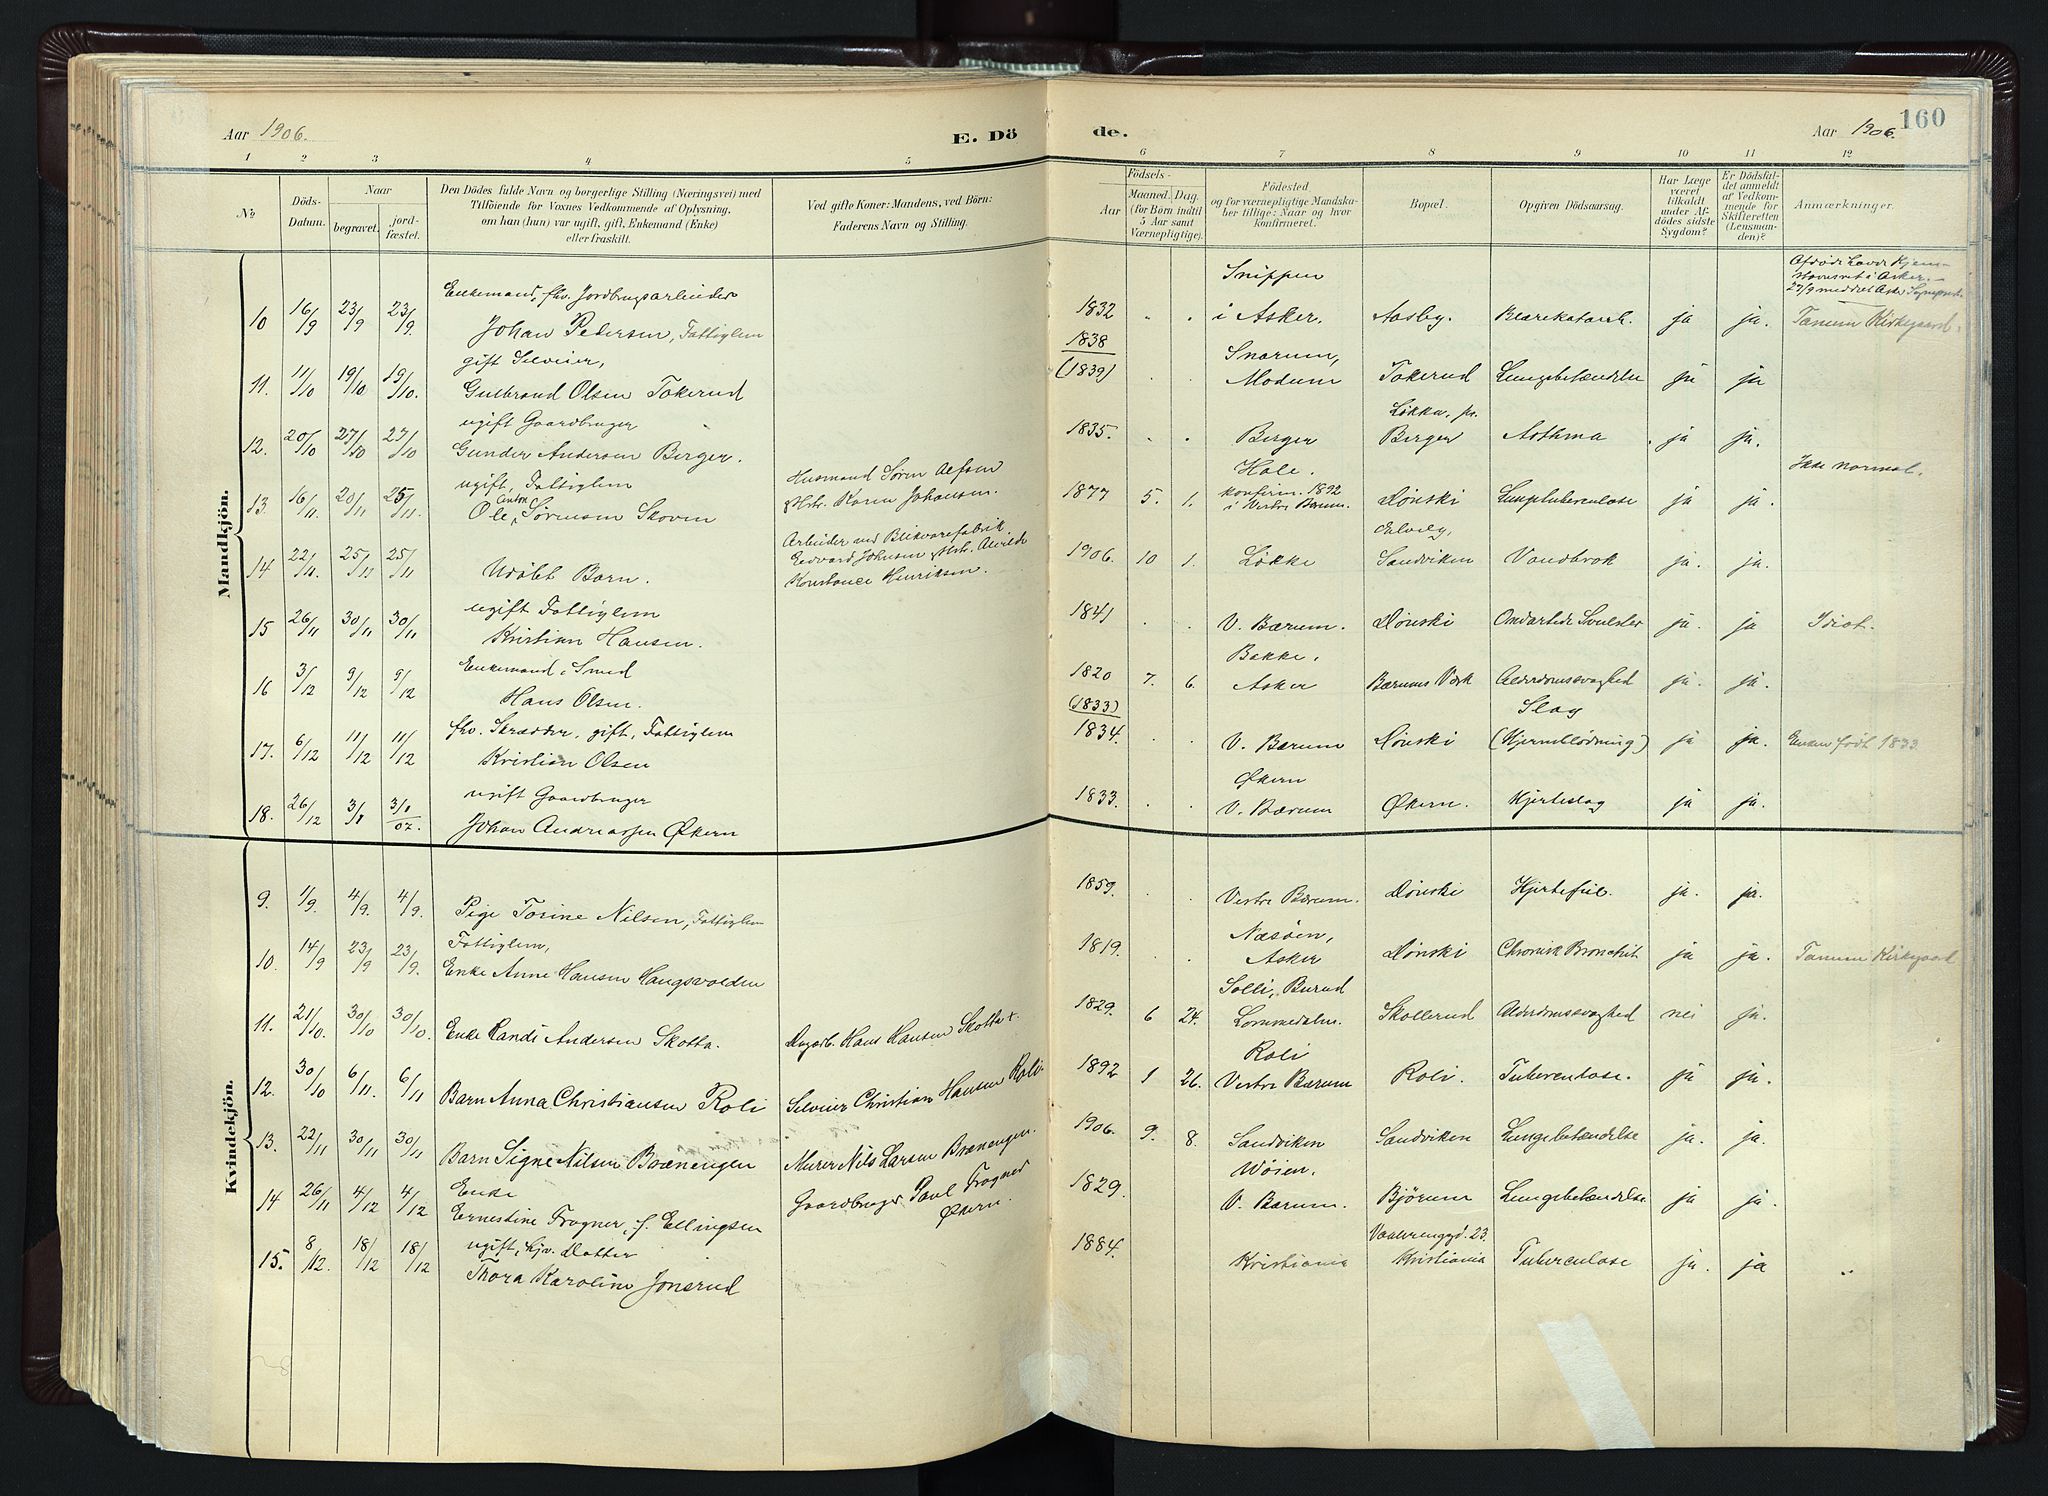 Aar 1906.
E. Dö
de.
Aar 1906.
160
1 2 3 4 5 6 7 8 9 10 11 12
№
Döds-Datum.
Naar
begravet.
jordfæstet.
Den Dödes fulde Navn og borgerlige Stilling (Næringsvei) med
Tilföiende for Voxnes Vedkommende af Oplysning,
om han (hun) var ugift, gift, Enkemand (Enke)
eller fraskilt.
Ved gifte Koner: Mandens, ved Börn:
Faderens Navn og Stilling.
Födsels-
Aar
Maaned. Dag.
(for Börn indtil
5 Aar samt
Værnepligtige).
Födested
og for værnepligtige Mandskaber tillige: Naar og hvor
konfirmeret.
Bopæl.
Opgiven Dödsaarsag.
Har Læge
været
tilkaldt
under Afdödes sidste
Sygdom?
Er Dödsfaldet anmeldt
af Vedkommende for
Skifteretten
(Lensmanden)?
Anmærkninger.
Mandkjön.
10 16/9 23/9 23/9. Enkemand, fhv. Jordbrugsarbeider
Johan Pedersen, Fattiglem
1832 " " Snippen
i Asker. Aasby. Blærekatarrh. ja ja.
Tanum Kirkegaard.
11. 11/10 19/10 19/10. gift Selveier,
Gulbrand Olsen Tokerud
1838
(1839) . . Snarum,
Modum Tokerud Lungebetændelse ja ja
12. 20/10 27/10 27/10 ugift Gaardbruger
Gunder Andersen Berger.
1835. " " Berger Løkka, pr.
Berger Asthma ja ja.
13. 16/11. 20/11 25/11. ugift, Fattiglem
Ole Anton Sørensen Skoven
Husmand Søren Alfsen
& Hstr. Karen Johansen.
1877 5. 1. Hole.
konfirm. 1892
i Vestre Bærum. Dønski Lungetuberculose ja ja.
Ikke normal.
14 22/11. 25/11 25/11 Udøbt Barn.
Arbeider ved Blikvarefabrik
Edvard Johnsen & Hstr. Alvilde
Konstance Henriksen.
1906. 10 1. Løkke Elvely,
Sandviken Vandbrok ja. ja.
15 26/11 30/11 30/11 ugift Fattiglem
Kristian Hansen.
1841 . . V. Bærum. Dønski Ondartede Svulster ja. ja Idiot.
16 3/12 9/12 9/12 Enkemand, Smed
Hans Olsen.
1820 7. 6. Bakke,
Asker Bærums Værk Alderdomssvaghed ja. ja.
17. 6/12 11/12 11/12 fhv. Skrædder, gift, Fattiglem
Kristian Olsen
(1833)
1834. V. Bærum Dønski Slag
(Hjerneblødning) ja ja. Enken født 1833
18. 26/12 3/1 3/1 07. ugift Gaardbruger
Johan Andreassen Økern
1833. . . Økern
V. Bærum Økern. Hjerteslag ja ja.
Kvindekjön.
9. 1/9. 4/9. 4/9. Pige Torine Nilsen, Fattiglem
1859. . . Vestre Bærum. Dønski Hjertefeil. ja. ja.
10. 14/9 23/9 23/9. Fattiglem,
Enke Anne Hansen Haugsvolden
1819. . . Næsøen,
Asker Dønski Chronisk Bronchit ja ja. Tanum Kirkegaard
11. 21/10. 30/10 30/10. Enke Randi Andersen Skotta.
Dagarb. Hans Hansen Skotta +.
1829. 6 24. Solli, Burud
Lommedalen. Skollerud Alderdomssvaghed nei ja.
12. 30/10 6/11. 6/11 Barn Anna Christiansen Roli
Selveier Christian Hansen Roli.
1892 1 26. Roli
Vestre Bærum Roli. Tuberculose. ja ja.
13. 22/11 30/11 30/11 Barn Signe Nilsen Brænengen
Murer Nils Larsen Brænengen.
1906. 9. 8. Sandviken Sandviken Lungebetændelse ja. ja.
14 26/11 4/12 4/12 Enke
Ernestine Frogner, f. Ellingsen
Gaardbruger Paul Frogner
Økern.
1829. Wøien.
V. Bærum. Bjørum Lungebetændelse ja ja.
15. 8/12. 18/12 18/12 ugift, hjv. Datter
Thora Karoline Jonsrud
1884. Kristiania Vaalerenggd. 23.
Kristiania Tuberculose ja. ja